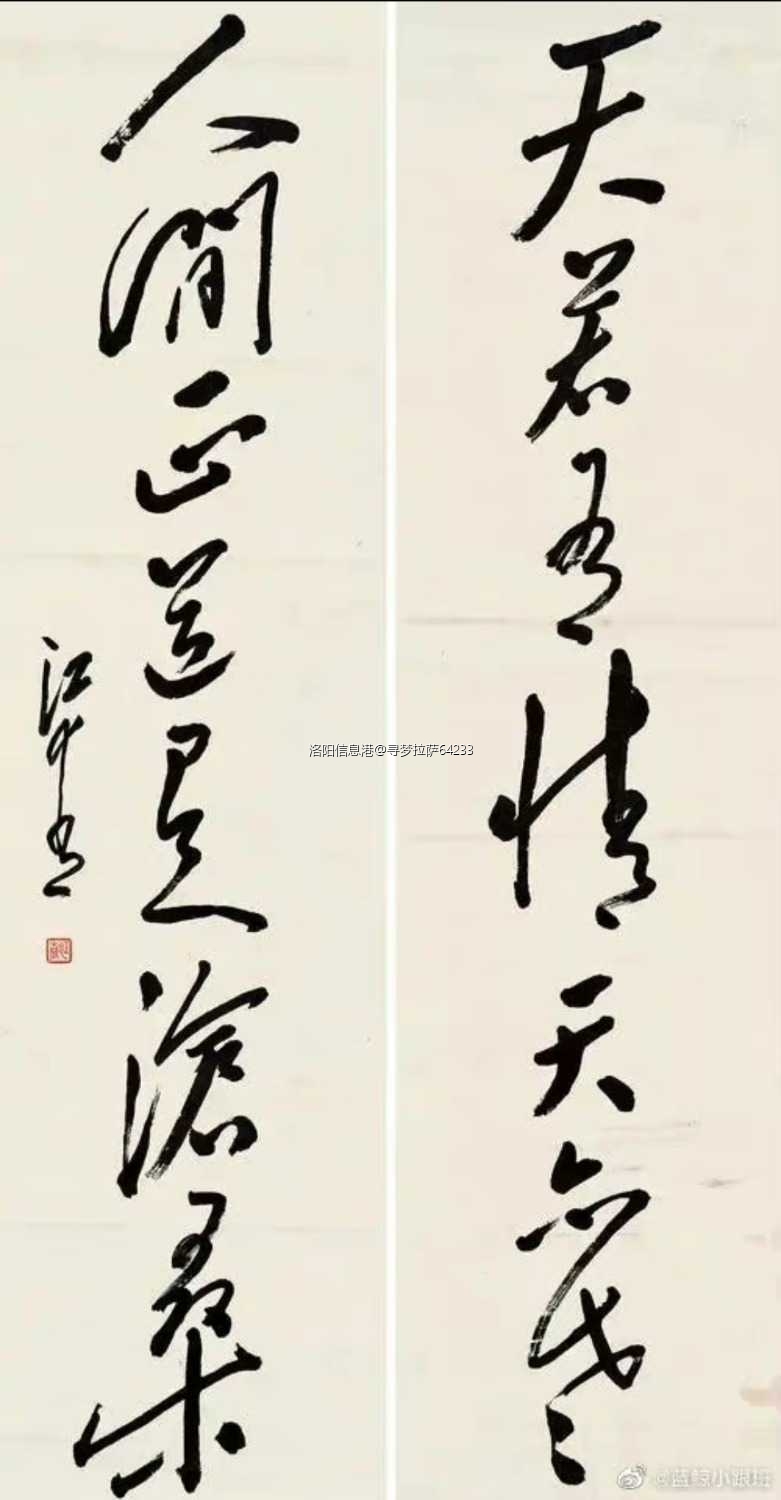 天若有情天亦老
人間正道是滄桑
洛阳信息港@寻梦拉萨64233
@蓝鲸小跟班